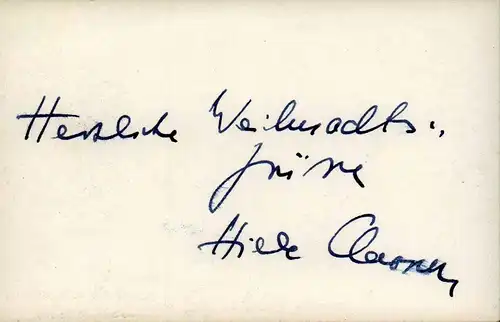 Herzliche Weihnachts-
grüsse
Hilde